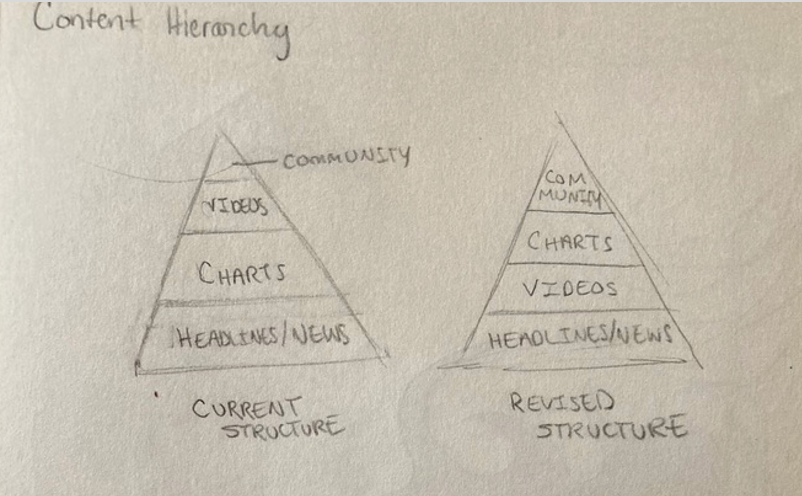 Content Hierarchy
COMMUNITY
VIDEOS
CHARTS
HEADLINES/NEWS
CURRENT
STRUCTURE
COM
MUNITY
CHARTS
VIDEOS
HEADLINES/NEWS
REVISED
STRUCTURE